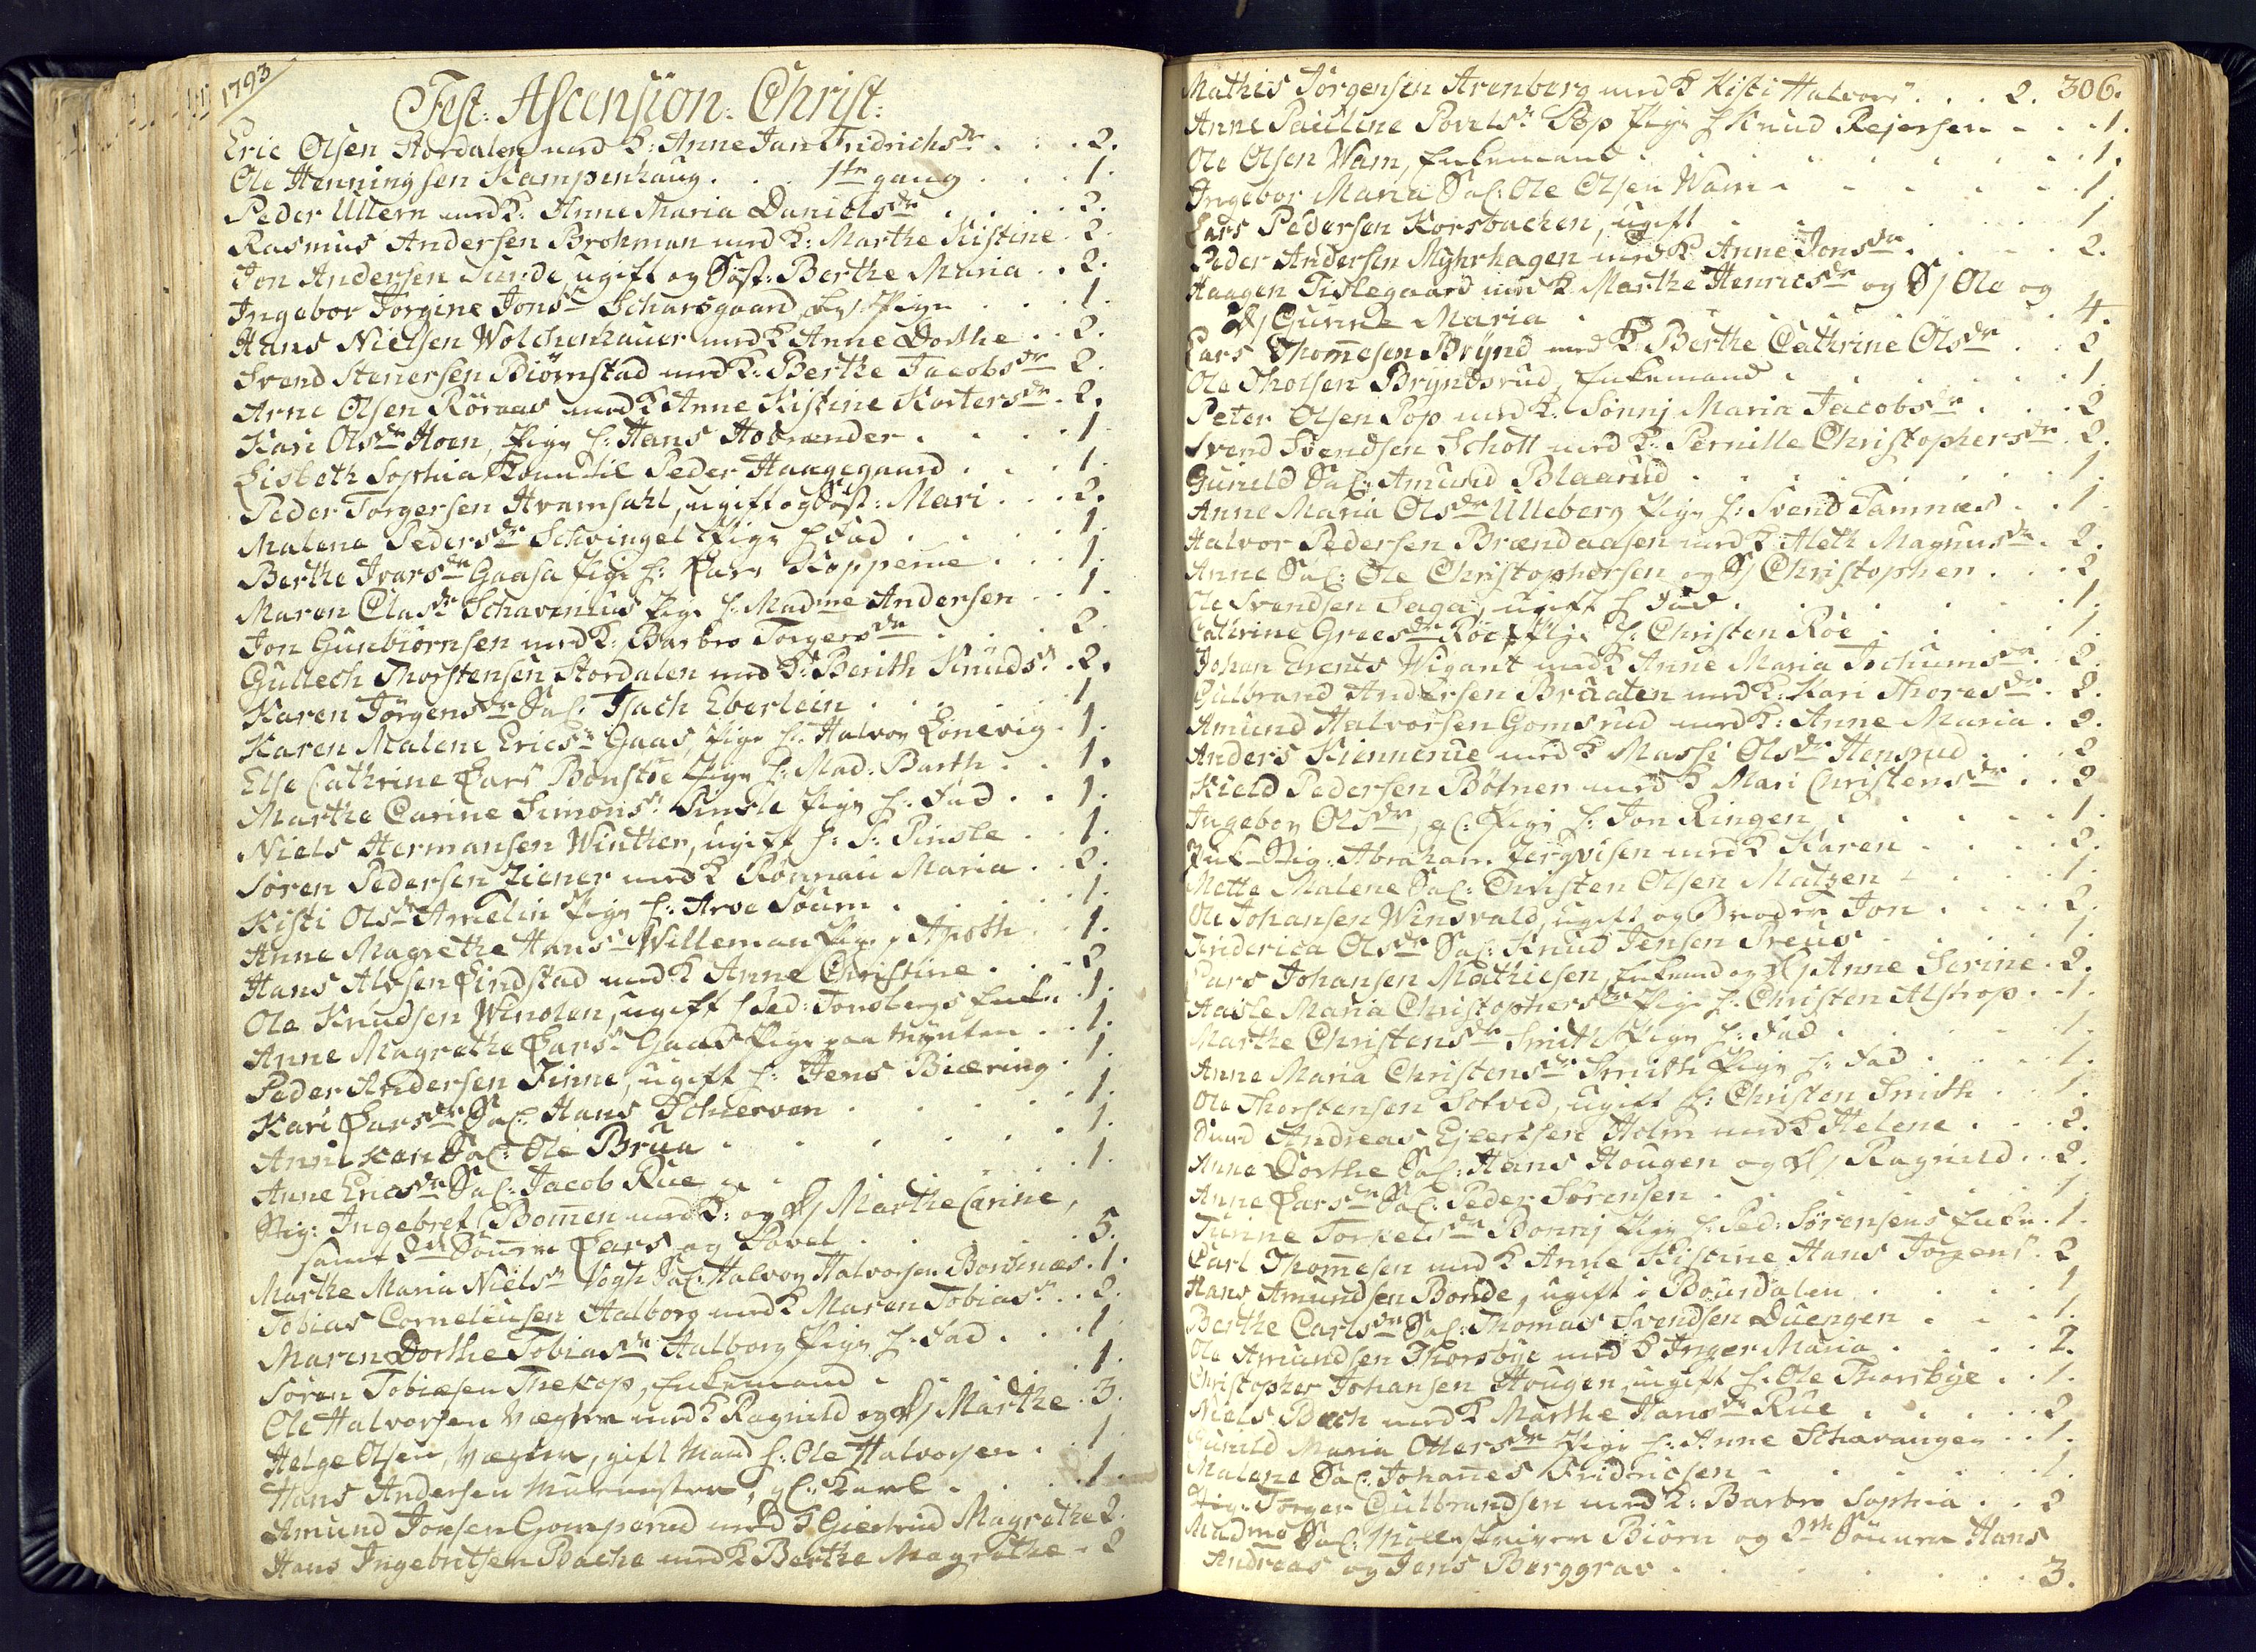 1793
Fest: Ascension: Christ:
Eric Olsen Stordalen med K: Anne Jan Fridrichsdr . . . 2.
Ole Henningsen Kampenhaug . . . 1ste gang . . . 1.
Peder Ullern med K: Anne Maria Danielsdr . . . 2.
Rasmus Andersen Brohman med K: Marthe Kistine . 2.
Jon Andersen Sunde, ugift og Søst: Berthe Maria . . 2.
Ingebor Jorgine Jonsdr Scharsgaard, Pige . . . 1.
Hans Nielsen Wolchenhauer med K Anne Dorthe . . 2.
Svend Stenersen Biørnstad med K: Berthe Jacobsdr . 2.
Arne Olsen Röraas med K Anne Kistine Kortersdr . 2.
Kari Olsdr Hoen, Pige h: Hans Hobrænder . . . 1.
Lisbeth Sophia Peder Haagegaard . . . 1.
Peder Torgersen Hvamsahl, ugift og Søst: Mari . . . 2.
Malena Pedersdr Schvingel Pige h Fad . . . 1.
Berthe Ivarsdr Gaasa Pige h: Lars Kopperne . . . 1.
Maren Clasdr Schavenius Pige h: Madme Andersen . . 1.
Jon Gunbiørnsen med K: Barbro Torgersdr . . . 2.
Gullech Thorstensen Stordalen med K: Berith Knudsdr . 2.
Karen Jörgensdr Sal: Isach Eberlein . . . 1.
Karen Malene Ericsdr Gaas, Pige h: Halvor Lönevig . 1.
Else Cathrine Larsdr Bonstöe Pige h: Mad: Barth . . 1.
Marthe Carine Simonsdr Pinsle Pige h: Fad . . 1.
Niels Hermansen Winther, ugift h: S: Pinsle . . 1.
Sören Pedersen Ziener med K Rønnau Maria . . 2.
Kisti Olsdr Amelin Pige h: Arve Soum . . . 1.
Anne Magrethe Hansdr Willeman Pige p Apoth . . 1.
Hans Alvsen Lindstad med K Anne Christine . . . 2
Ole Knudsen Winolen, ugift h Ped: Tonsbergs Enke . 1.
Anne Magrethe Larsdr Gaas Pige paa Mynten . . 1.
Peder Andersen Finne, ugift h: Jens Biæring . 1.
Kari Larsdr Sal: Hans Schierven . . . 1.
Anne Sal: Ole Brua . . . 1.
Anne Ericsdr Sal: Jacob Rue . . . 1.
Stig: Ingebret Bomen med K: og D/ Marthe Carine,
samt 2de Sønner Lars og Povel . . . 5.
Marthe Maria Nielsdr Vogt Sal: Halvor Halvorsen Bondnæs . 1.
Tobias Corneliusen Aalborg med K Maren Tobiasdr . . 2.
Maren Dorthe Tobiasdr Aalborg Pige h: Fad . . . 1.
Sören Tobiæsen Thekop, Enkemand . . . 1.
Ole Halvorsen Vægter med K Ragnild og D/ Marthe . 3.
Helge Olsen, Vægter, gift Mand h: Ole Halvorsen . . 1.
Hans Andersen Murmester, gl: Karl . . . 1.
Amund Jonsen Gomperud med K Giertrud Magrethe 2.
Hans Ingebretsen Bache med K Berthe Magrethe . 2
306.
Mathis Jörgensen Arenberg med K Kisti Halvorsdr . . . 2.
Anne Pauline Povelsdr Pop Pige h Knud Rejersen . . . 1.
Ole Olsen Wam, Enkemand . . . 1.
Ingebor Maria Sal: Ole Olsen Wam . . . 1.
Lars Pedersen Korsbacken, ugift . . . 1
Peder Andersen Myhrhagen med K Anne Jonsdr . . . 2.
Haagen Tislegaard med K Marthe Henricsdr og S/ Ole og
D/ Gunne Maria . . . 4.
Lars Thomesen Brynd med K Berthe Cathrine Olsdr . . 2
Ole Tholsen Bryndsrud, Enkemand . . . 1.
Peter Olsen Pop med K. Sonnj Maria Jacobsdr . . . 2
Svend Svendsen Schott med K: Pernille Christophersdr . 2.
Gunild Sal: Amund Blaarud . . . 1.
Anne Maria Olsdr Ulleberg Pige h: Svend Tamnæs . . 1.
Halvor Pedersen Brændaasen med K Aleth Magnusdr . 2.
Anne Sal: Ole Christophersen og S/ Christopher . . . 2
Ole Svendsen Saga, ugift h Fad . . . 1.
Cathrine Greesdr Röe Pige h: Christen Röe . . . 1.
Johan Erents Wigant med K Anne Maria Jochumsdr . 2.
Gulbrand Andersen Bruaten med K: Kari Thoresdr . 2.
Amund Halvorsen Gomsrud med K: Anne Maria . 2.
Anders Kiennerue med K Massi Olsdr Hensrud . . . 2
Kield Pedersen Böhner med K Mari Christensdr . . 2
Ingebor Olsdr, gl: Pige h: Jon Ringen . . . 1.
Stig: Abraham Jergvisen med K Karen . . . 2.
Mette Malene Sal: Christen Olsen Matzen . . . 1.
Ole Johansen Winsvald, ugift og Broder Jon . . . 2.
Friderica Olsdr Sal: Knud Jensen Preus . . . 1.
Lars Johansen Mathiesen, Enkmd og D/ Anne Serine . 2.
Haisle Maria Christophersdr Pige h: Christen Alstrop . . 1.
Marthe Christensdr Smith Pige h: Fad . . . 1.
Anne Maria Christensdr Smith Pige h: Fad . . . 1.
Ole Thorstensen Solved, ugift h: Christen Smith . . 1.
Andreas Ejlertsen Holm med K Helene . . . 2.
Anne Dorthe Sal: Hans Hougen og D/ Ragnild . . 2.
Anne Larsdr Sal: Peder Sörensen . . . 1.
Turine Torkelsdr Bonnj Pige h: Ped: Sörensens Enke . 1.
Carl Thomesen med K Anne Kistine Hans Jorgensdr . 2
Hans Amundsen Bonde, ugift i Bourdalen . . . 1
Berthe Carlsdr Sal: Thomas Svendsen Duengen . . . 1.
Ole Amundsen Thorsbye med K Inger Maria . . . 2.
Christopher Johansen Hougen, ugift h: Ole Thorsbye . . 1.
Niels Bech med K Marthe Hansdr Rue . . . 2
Gunild Maria Ottersdr Pige h: Anne Scharvangen . . 1.
Malene Sal: Johanes Fridricsen . . . 1.
Stig: Torger Gulbrandsen med K: Barbro Sophia . . 2
Madme Sal: Møllskriver Biörn og 2de Sönner Hans
Andreas og Jens Berggrav . . . 3.